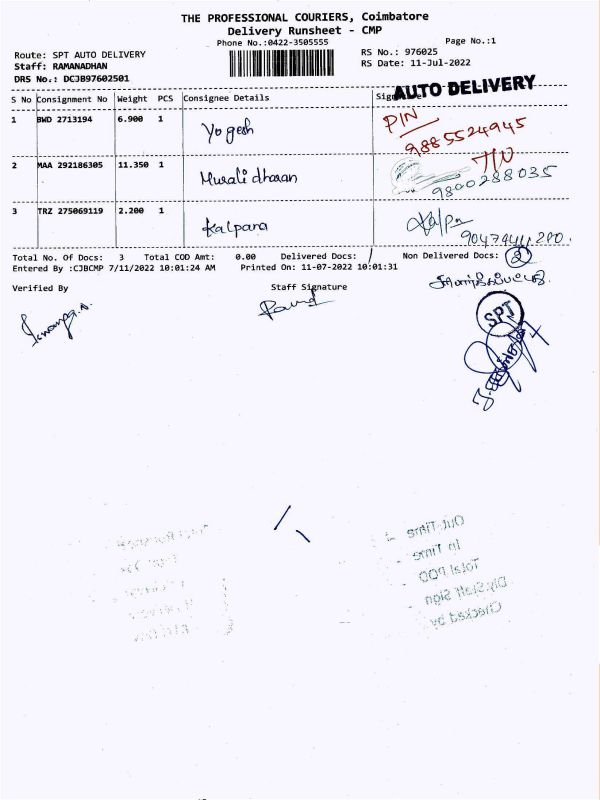 THE PROFESSIONAL COURIERS, Coimbatore
Delivery Runsheet - CMP
Phone No.:0422-3505555 Page No.:1
Route: SPT AUTO DELIVERY RS No.: 976025
Staff: RAMANADHAN RS Date: 11-Jul-2022
DRS No.: DCJB97602501
AUTO DELIVERY
S No Consignment No Weight PCS Consignee Details
1 BWD 2713194 6.900 1 Yogesh PIN
9885524945
2 MAA 292186305 11.350 1 Muralidharan
9800288035
3 TRZ 275069119 2.200 1 Kalpana Kalpa
Total No. Of Docs: 3 Total COD Amt: 0.00 Delivered Docs: / Non Delivered Docs: 2
Entered By :CJBCMP 7/11/2022 10:01:24 AM Printed On: 11-07-2022 10:01:31
Verified By Staff Signature
SPT
Out-Time
In Time
Total POD
Dly.Staff Sign
Checked by